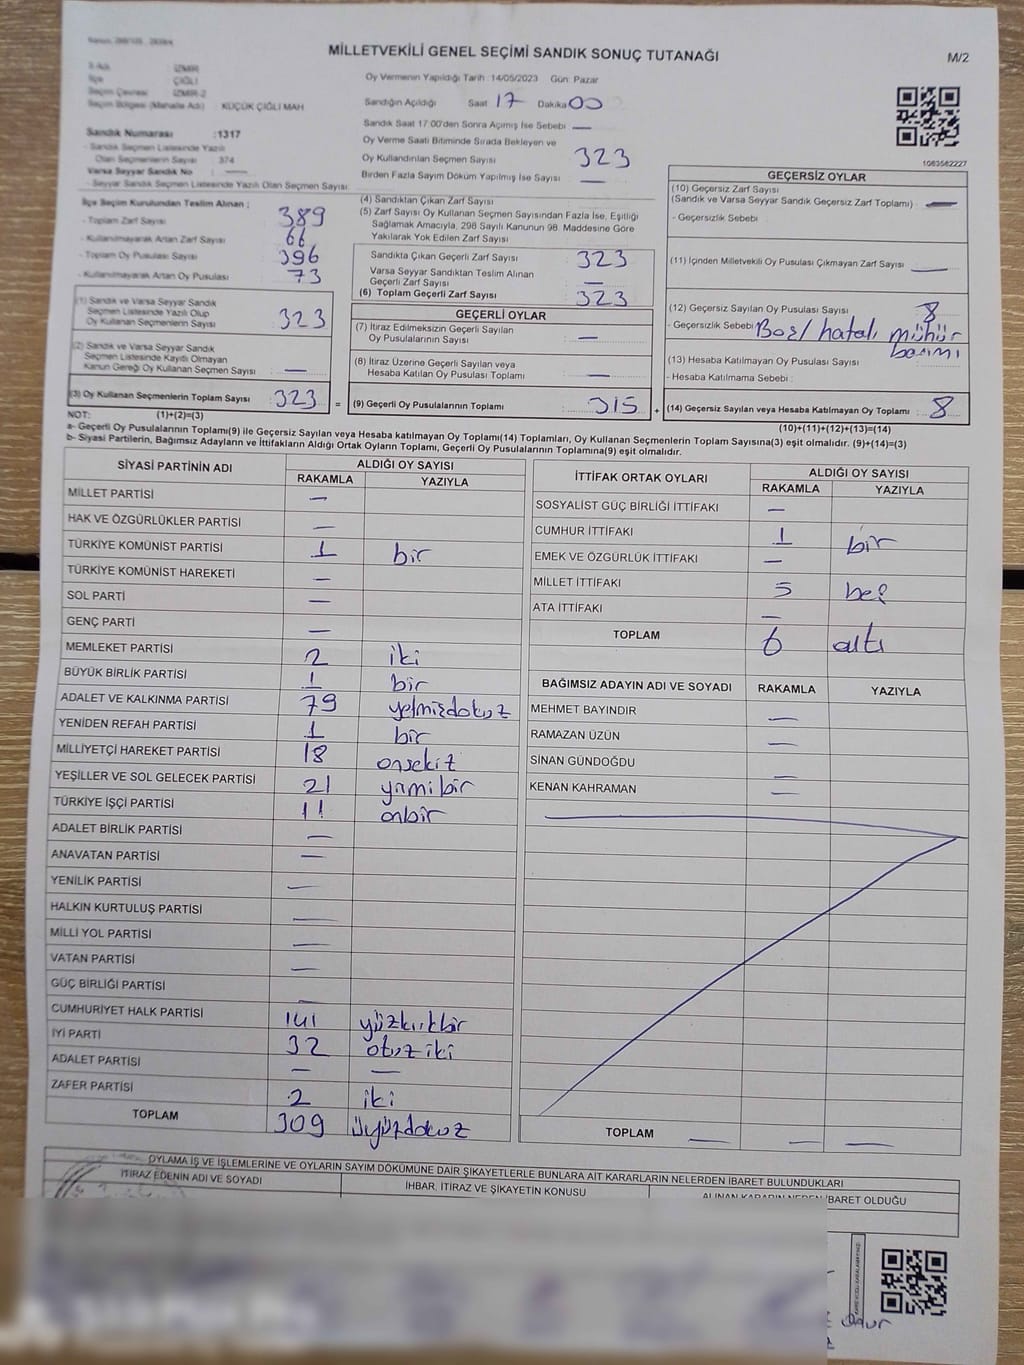 MİLLETVEKİLİ GENEL SEÇİMİ SANDIK SONUÇ TUTANAĞI
M/2
İZMİR
İlçe : ÇİĞLİ
Seçim Çevresi : İZMİR-2
Seçim Bölgesi (Mahalle Adı) : KÜÇÜK ÇİĞLİ MAH
Sandık Numarası : 1317
- Sandık Seçmen Listesinde Yazılı
Olan Seçmenlerin Sayısı : 374
Varsa Seyyar Sandık No
- Seyyar Sandık Seçmen Listesinde Yazılı Olan Seçmen Sayısı
Oy Vermenin Yapıldığı Tarih : 14/05/2023 Gün: Pazar
Sandığın Açıldığı Saat 17 Dakika 00
Sandık Saat 17:00'den Sonra Açımış İse Sebebi —
Oy Verme Saati Bitiminde Sırada Bekleyen ve
Oy Kullandırılan Seçmen Sayısı 323
Birden Fazla Sayım Döküm Yapılmış İse Sayısı —
1083582227
İlçe Seçim Kurulundan Teslim Alınan :
- Toplam Zarf Sayısı 389
- Kullanılmayarak Artan Zarf Sayısı 66
- Toplam Oy Pusulası Sayısı 396
- Kullanılmayarak Artan Oy Pusulası 73
(1) Sandık ve Varsa Seyyar Sandık
Seçmen Listesinde Yazılı Olup
Oy Kullanan Seçmenlerin Sayısı 323
(2) Sandık ve Varsa Seyyar Sandık
Seçmen Listesinde Kayıtlı Olmayan
Kanun Gereği Oy Kullanan Seçmen Sayısı —
(3) Oy Kullanan Seçmenlerin Toplam Sayısı 323
(4) Sandıktan Çıkan Zarf Sayısı
(5) Zarf Sayısı Oy Kullanan Seçmen Sayısından Fazla İse, Eşitliği
Sağlamak Amacıyla, 298 Sayılı Kanunun 98. Maddesine Göre
Yakılarak Yok Edilen Zarf Sayısı
Sandıkta Çıkan Geçerli Zarf Sayısı 323
Varsa Seyyar Sandıktan Teslim Alınan
Geçerli Zarf Sayısı —
(6) Toplam Geçerli Zarf Sayısı 323
GEÇERLİ OYLAR
(7) İtiraz Edilmeksizin Geçerli Sayılan
Oy Pusulalarının Sayısı —
(8) İtiraz Üzerine Geçerli Sayılan veya
Hesaba Katılan Oy Pusulası Toplamı —
= (9) Geçerli Oy Pusulalarının Toplamı 315 +
GEÇERSİZ OYLAR
(10) Geçersiz Zarf Sayısı
(Sandık ve Varsa Seyyar Sandık Geçersiz Zarf Toplamı) —
- Geçersizlik Sebebi
(11) İçinden Milletvekili Oy Pusulası Çıkmayan Zarf Sayısı —
(12) Geçersiz Sayılan Oy Pusulası Sayısı 8
- Geçersizlik Sebebi Boş/hatalı mühür
basımı
(13) Hesaba Katılmayan Oy Pusulası Sayısı
- Hesaba Katılmama Sebebi :
(14) Geçersiz Sayılan veya Hesaba Katılmayan Oy Toplamı : 8
NOT: (1)+(2)=(3)
(10)+(11)+(12)+(13)=(14)
a- Geçerli Oy Pusulalarının Toplamı(9) ile Geçersiz Sayılan veya Hesaba katılmayan Oy Toplamı(14) Toplamları, Oy Kullanan Seçmenlerin Toplam Sayısına(3) eşit olmalıdır. (9)+(14)=(3)
b- Siyasi Partilerin, Bağımsız Adayların ve İttifakların Aldığı Ortak Oyların Toplamı, Geçerli Oy Pusulalarının Toplamına(9) eşit olmalıdır.
SİYASİ PARTİNİN ADI ALDIĞI OY SAYISI
RAKAMLA YAZIYLA
MİLLET PARTİSİ —
HAK VE ÖZGÜRLÜKLER PARTİSİ —
TÜRKİYE KOMÜNİST PARTİSİ 1 bir
TÜRKİYE KOMÜNİST HAREKETİ —
SOL PARTİ —
GENÇ PARTİ —
MEMLEKET PARTİSİ 2 iki
BÜYÜK BİRLİK PARTİSİ 1 bir
ADALET VE KALKINMA PARTİSİ 79 yetmişdokuz
YENİDEN REFAH PARTİSİ 1 bir
MİLLİYETÇİ HAREKET PARTİSİ 18 onsekiz
YEŞİLLER VE SOL GELECEK PARTİSİ 21 yirmibir
TÜRKİYE İŞÇİ PARTİSİ 11 onbir
ADALET BİRLİK PARTİSİ —
ANAVATAN PARTİSİ —
YENİLİK PARTİSİ —
HALKIN KURTULUŞ PARTİSİ —
MİLLİ YOL PARTİSİ —
VATAN PARTİSİ —
GÜÇ BİRLİĞİ PARTİSİ —
CUMHURİYET HALK PARTİSİ 141 yüzkırkbir
İYİ PARTİ 32 otuziki
ADALET PARTİSİ — —
ZAFER PARTİSİ 2 iki
TOPLAM 309 üçyüzdokuz
İTTİFAK ORTAK OYLARI ALDIĞI OY SAYISI
RAKAMLA YAZIYLA
SOSYALİST GÜÇ BİRLİĞİ İTTİFAKI —
CUMHUR İTTİFAKI 1 bir
EMEK VE ÖZGÜRLÜK İTTİFAKI —
MİLLET İTTİFAKI 5 beş
ATA İTTİFAKI —
TOPLAM 6 altı
BAĞIMSIZ ADAYIN ADI VE SOYADI RAKAMLA YAZIYLA
MEHMET BAYINDIR —
RAMAZAN ÜZÜN —
SİNAN GÜNDOĞDU —
KENAN KAHRAMAN —
TOPLAM — — —
OYLAMA İŞ VE İŞLEMLERİNE VE OYLARIN SAYIM DÖKÜMÜNE DAİR ŞİKAYETLERLE BUNLARA AİT KARARLARIN NELERDEN İBARET BULUNDUKLARI
İTİRAZ EDENİN ADI VE SOYADI İHBAR, İTİRAZ VE ŞİKAYETİN KONUSU ALINAN KARARIN NEDEN İBARET OLDUĞU